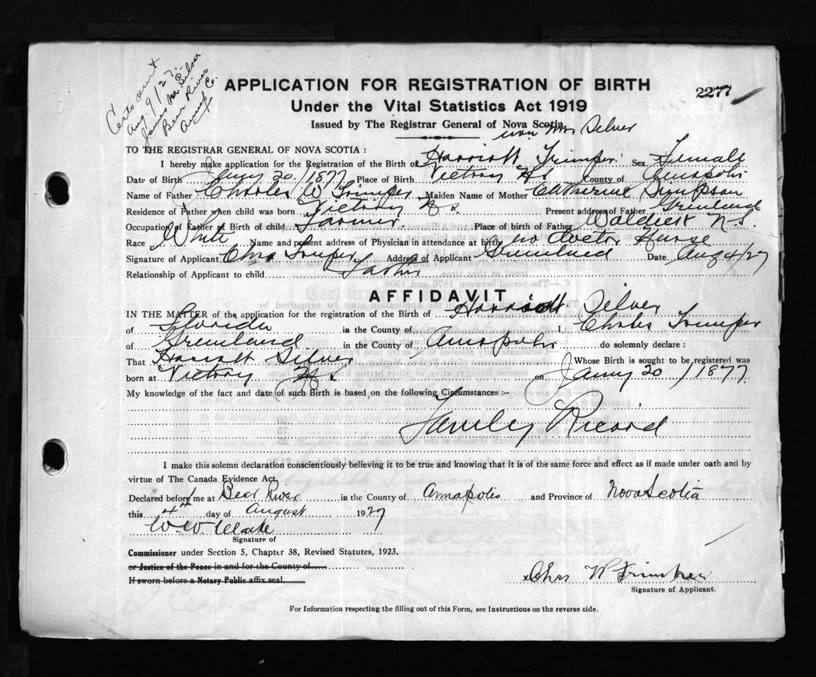 Cert sent
Aug 9/27
James M Silver
Bear River
Anna Co.
APPLICATION FOR REGISTRATION OF BIRTH
2277
Under the Vital Statistics Act 1919
Issued by The Registrar General of Nova Scotia
now Mrs Silver
TO THE REGISTRAR GENERAL OF NOVA SCOTIA :
I hereby make application for the Registration of the Birth of Harriott Trimper Sex Female
Date of Birth Jany 20 / 1877 Place of Birth Victory N S County of Annapolis
Name of Father Charles W Trimper Maiden Name of Mother Catherine Simpson
Residence of Father when child was born Victory N S Present address of Father Greenland
Occupation of Father of Birth of child Farmer Place of birth of Father Waldeck N S.
Race White Name and present address of Physician in attendance at birth no doctor Nurse
Signature of Applicant Chas Trimper Address of Applicant Greenland Date Aug 4/27
Relationship of Applicant to child Father
AFFIDAVIT
IN THE MATTER of the application for the Registration of Birth of Harriott Silver
of in the County of I, Charles Trimper
of Greenland in the County of Annapolis do solemnly declare :
That Harriott Silver Whose Birth is sought to be registered was
born at Victory N S on Jany 20 / 1877
My knowledge of the fact and date of such Birth is based on the following Circumstances :-
Family Record
I make this solemn declaration conscientiously believing it to be true and knowing that it is of the same force and effect as if made under oath and by
virtue of The Canada Evidence Act.
Declared before me at Bear River in the County of Annapolis and Province of Nova Scotia
this 4th day of August 1927
W. W.
Signature of
Commissioner under Section 5, Chapter 38, Revised Statutes, 1923.
or Justice of the Peace in and for the County of
If sworn before a Notary Public affix seal.
Chas W Trimper
Signature of Applicant.
For Information respecting the filling out of this Form, see Instructions on the reverse side.